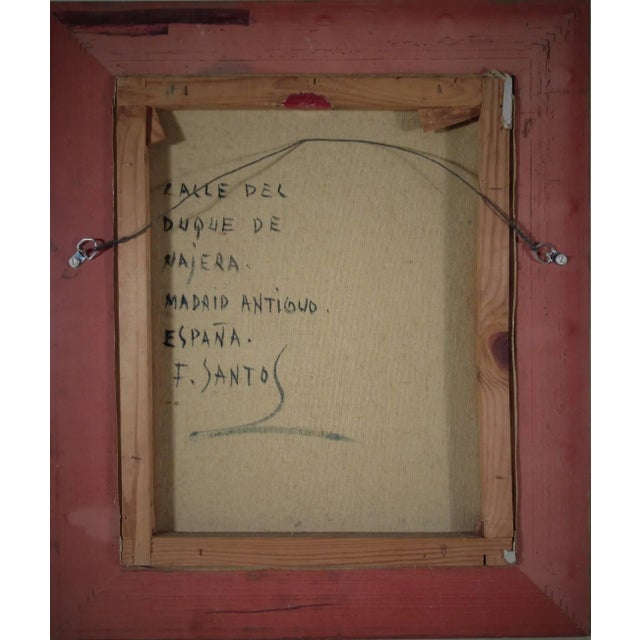 CALLE DEL
DUQUE DE
NAJERA.
MADRID ANTIGUO.
ESPAÑA.
F. SANTOS